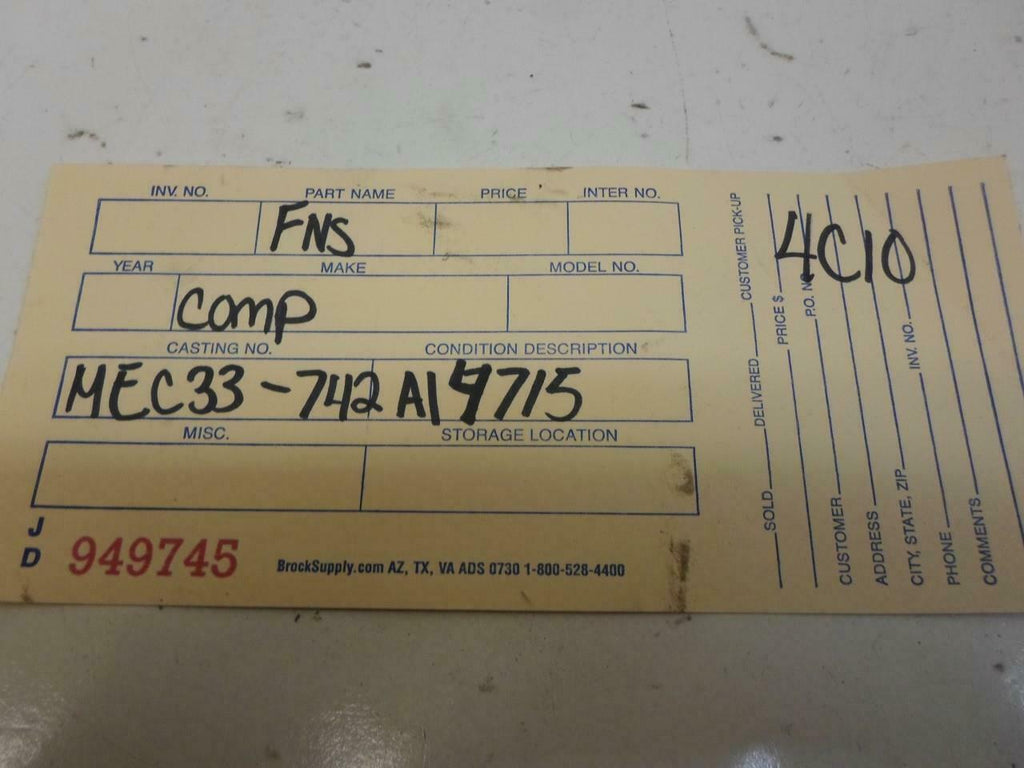 INV. NO. PART NAME PRICE INTER NO.
FNS
YEAR MAKE MODEL NO.
comp
CASTING NO. CONDITION DESCRIPTION
MEC33-742
MISC. STORAGE LOCATION
J
D
949745
BrockSupply.com AZ, TX, VA ADS 0730 1-800-528-4400
SOLD DELIVERED CUSTOMER PICK-UP
PRICE $
P.O.
CUSTOMER
ADDRESS
CITY, STATE, ZIP INV. NO.
PHONE
COMMENTS
4C10